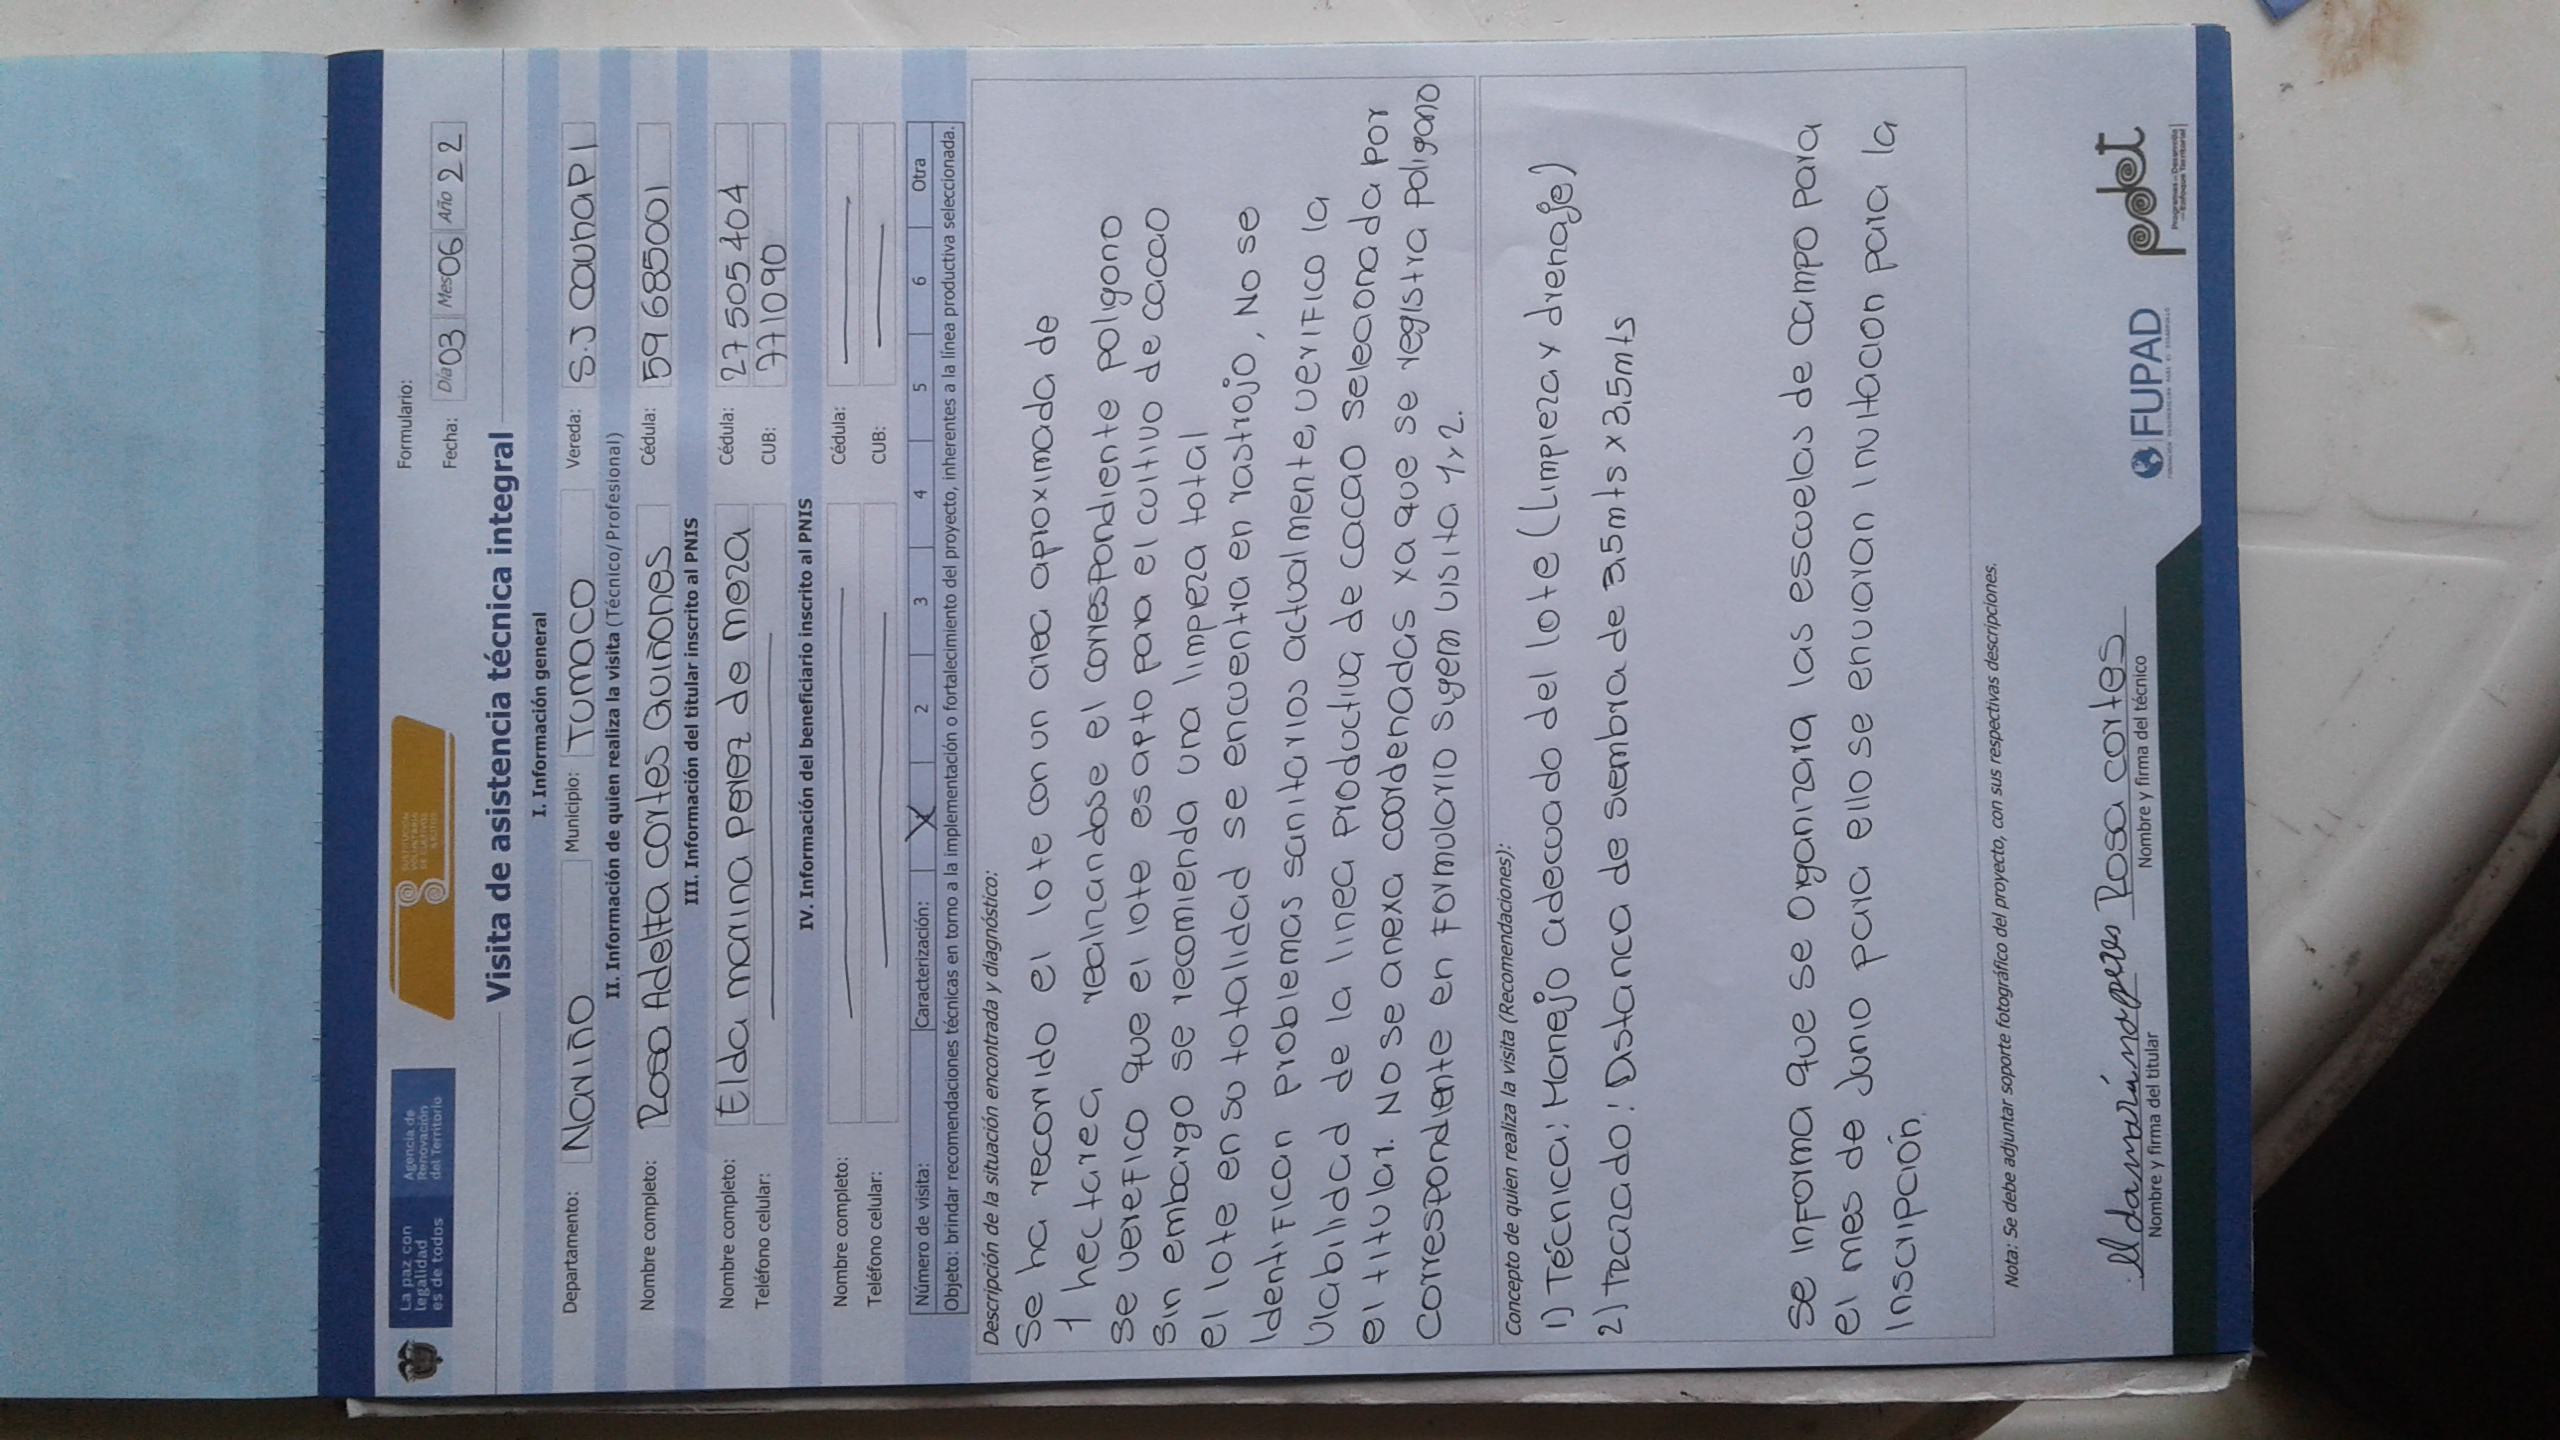 La paz con legalidad es de todos
Agencia de Renovación del Territorio
SUSTITUCIÓN VOLUNTARIA DE CULTIVOS ILÍCITOS
Formulario:
Fecha: Día 03 Mes 06 Año 22
Visita de asistencia técnica integral
I. Información general
Departamento: Nariño Municipio: Tumaco Vereda: S.J Caunapi
II. Información de quien realiza la visita (Técnico/Profesional)
Nombre completo: Rosa Adelfa cortes Quiñones Cédula: 59685001
III. Información del titular inscrito al PNIS
Nombre completo: Elda marina perez de meza Cédula: 27505404
Teléfono celular: CUB: 771090
IV. Información del beneficiario inscrito al PNIS
Nombre completo: Cédula:
Teléfono celular: CUB:
Número de visita: Caracterización: X 2 3 4 5 6 Otra
Objeto: brindar recomendaciones técnicas en torno a la implementación o fortalecimiento del proyecto, inherentes a la línea productiva seleccionada.
Descripción de la situación encontrada y diagnóstico:
Se ha recorrido el lote con un area aproximada de
1 hectarea realinandose el correspondiente poligono
Se verefico que el lote es apto para el cultivo de cacao
Sin embargo se recomienda una limpieza total
el lote en su totalidad se encuentra en rastrojo, No se
Identifican problemas sanitarios actualmente, verifico la
Viabilidad de la linea productiva de cacao seleccionada por
el titular. No se anexa coordenadas ya que se registra poligono
correspondiente en Formulario sygem visita 1 y 2.
Concepto de quien realiza la visita (Recomendaciones):
1) Técnica: Manejo adecuado del lote (Limpieza y drenaje)
2) trazado: Distanca de siembra de 3.5mts x 3.5mts
Se informa que se organizara las escuelas de campo para
el mes de Junio para ello se enviaran invitacion para la
Inscripción.
Nota: Se debe adjuntar soporte fotográfico del proyecto, con sus respectivas descripciones.
Elda marina perez Rosa cortes
Nombre y firma del titular Nombre y firma del técnico
FUPAD
pdet